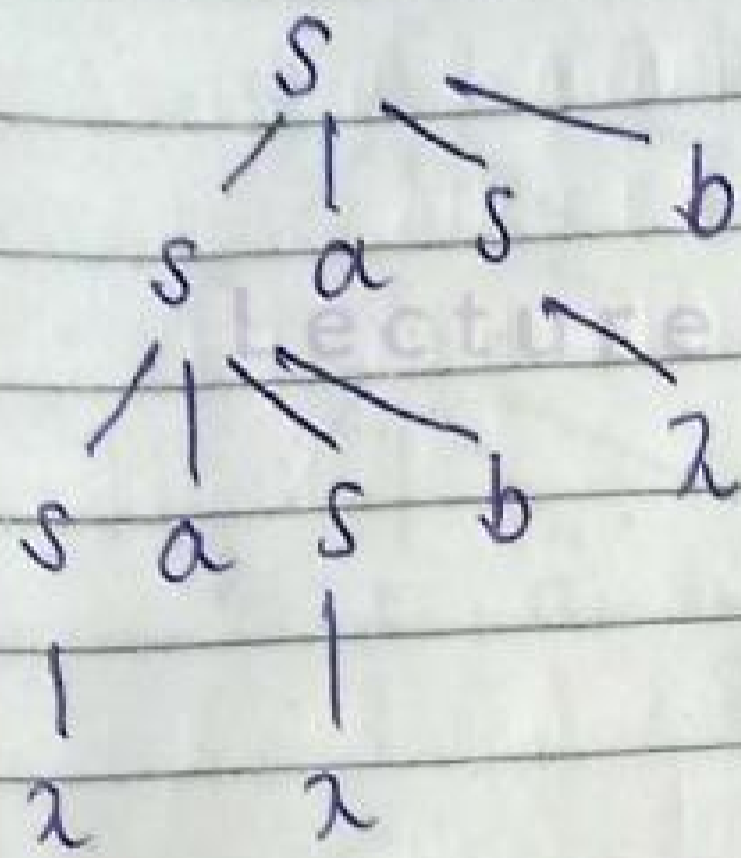 S
S a S b
Lecture
S a S b λ
λ λ